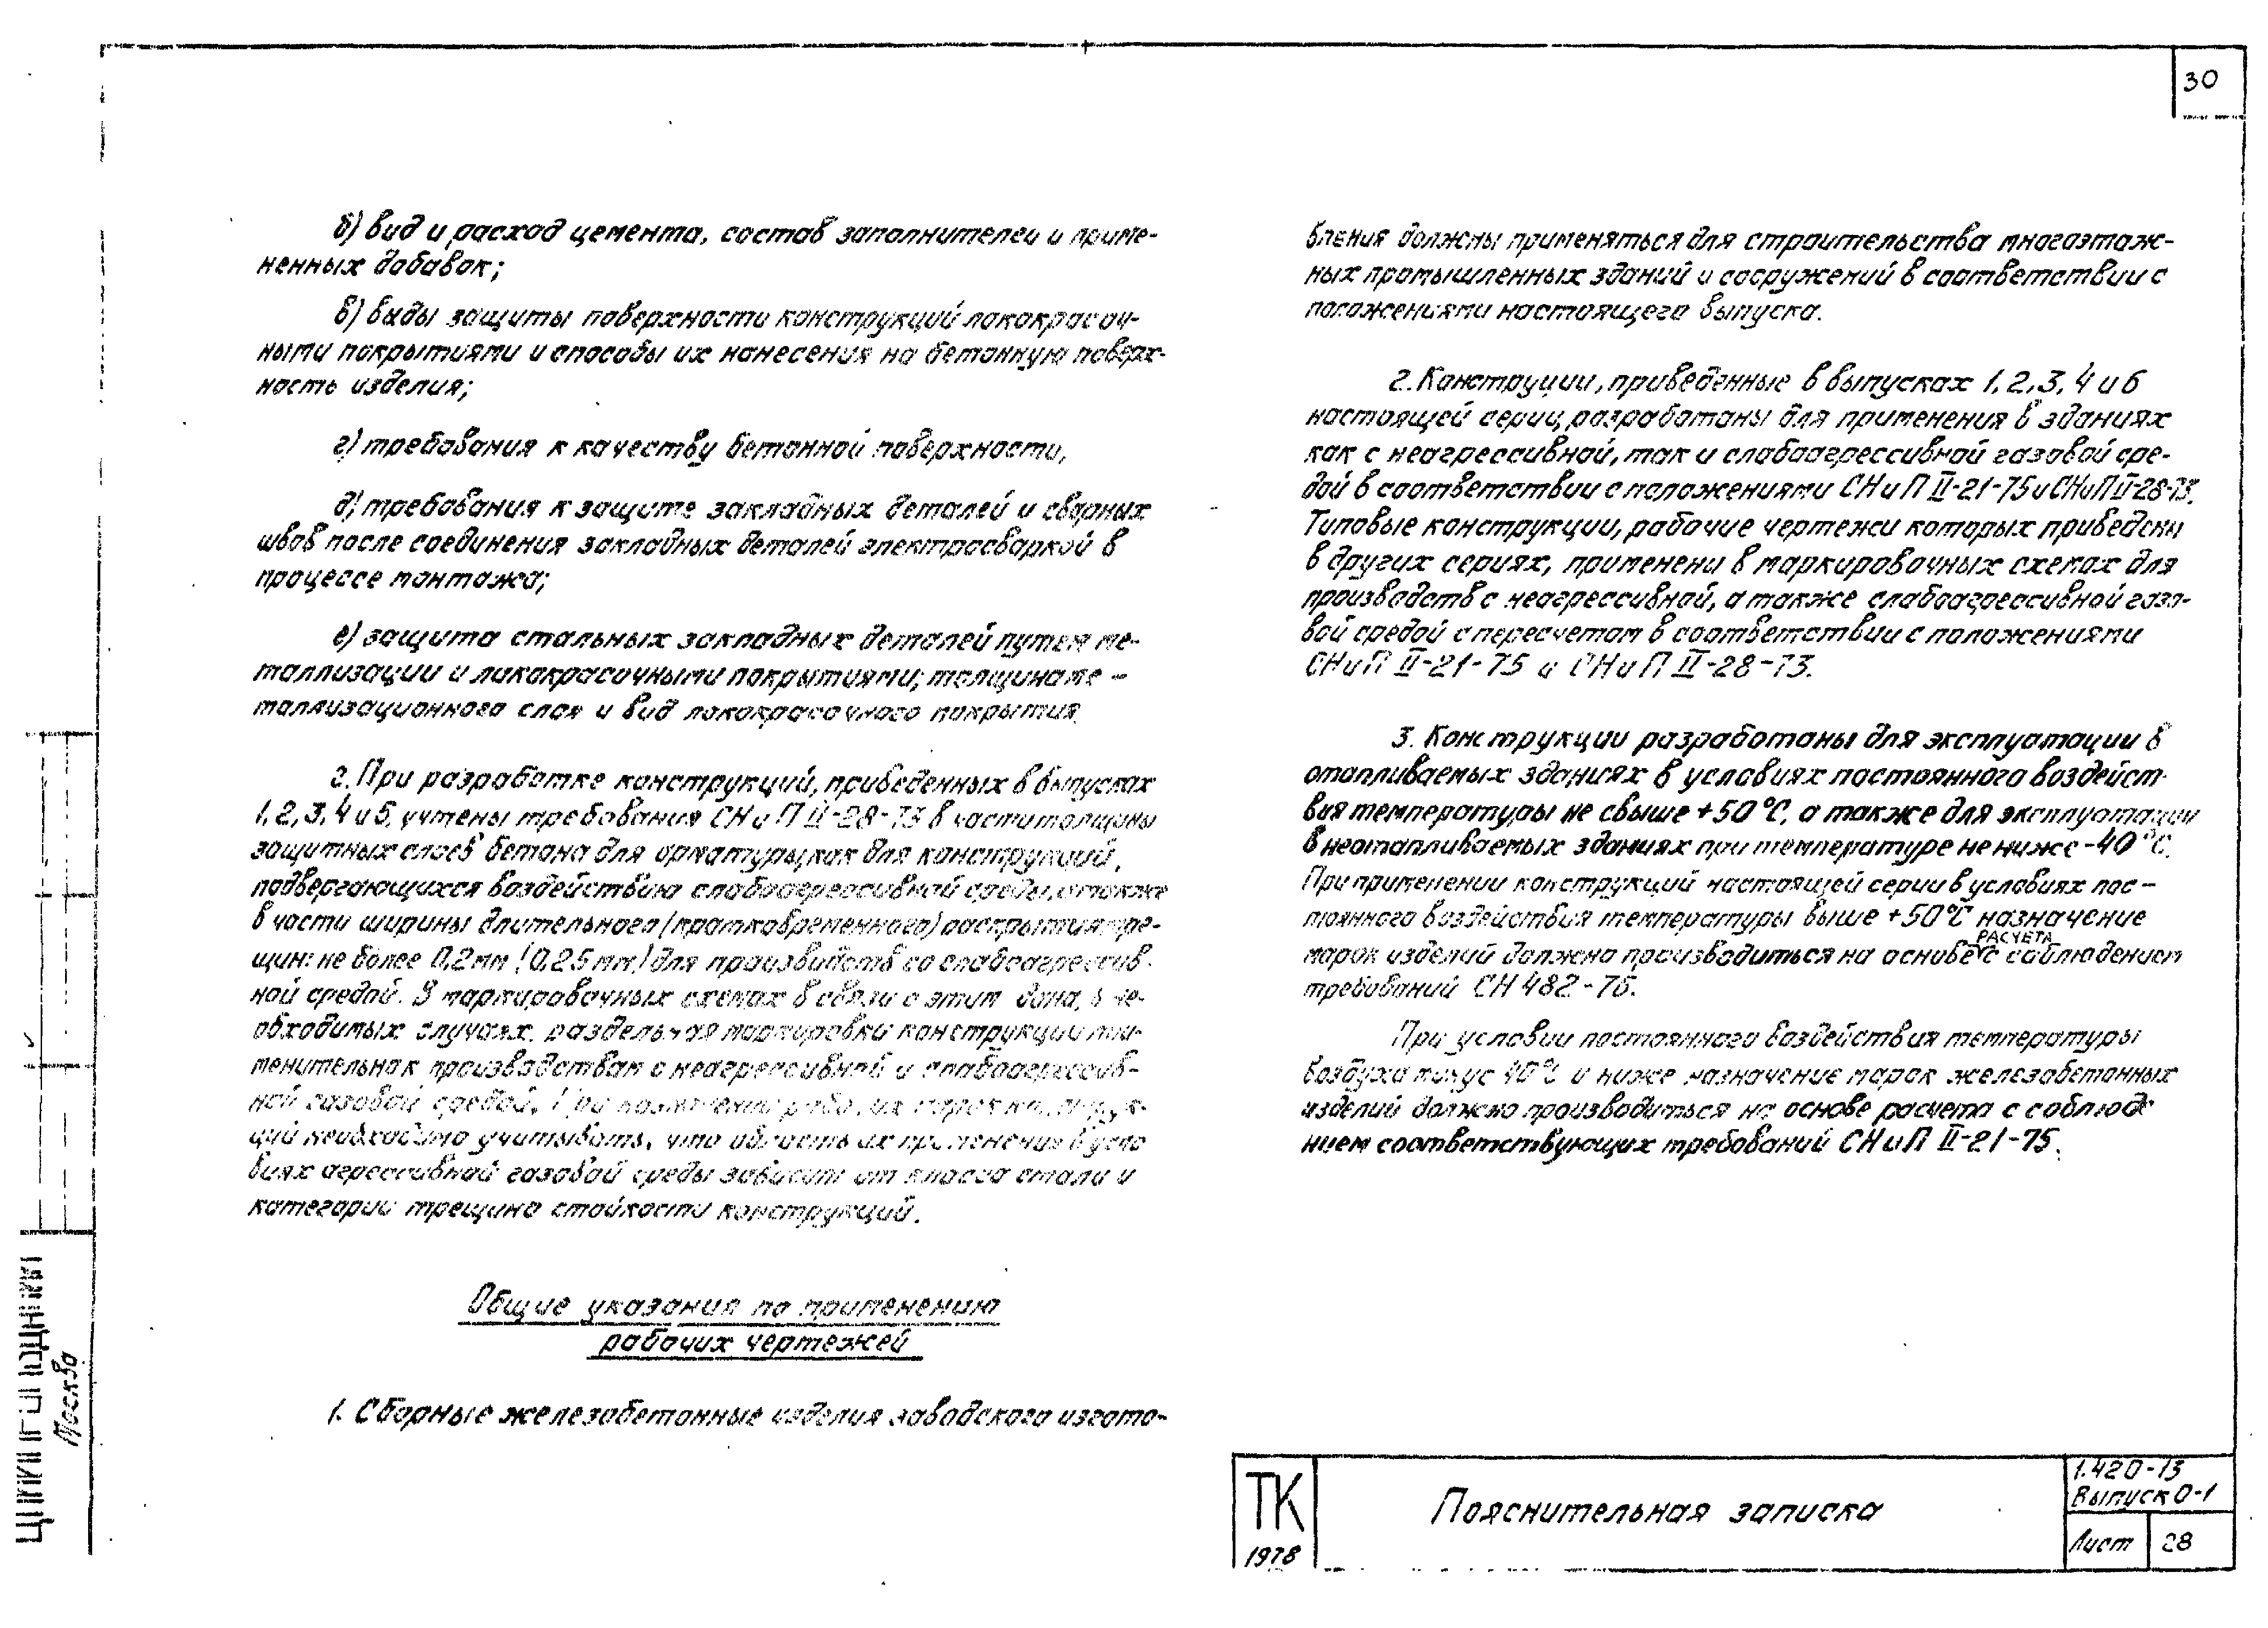 30
б) вид и расход цемента, состав заполнителей и приме-
ненных добавок;
в) виды защиты поверхности конструкций лакокрасоч-
ными покрытиями и способы их нанесения на бетонную поверх-
ность изделия;
г) требования к качеству бетонной поверхности,
д) требования к защите закладных деталей и сварных
швов после соединения закладных деталей электросваркой в
процессе монтажа;
е) защита стальных закладных деталей путем ме-
таллизации и лакокрасочными покрытиями; толщина ме-
таллизационного слоя и вид лакокрасочного покрытия.
2. При разработке конструкций, приведенных в выпусках
1, 2, 3, 4 и 5, учтены требования СНиП II-28-73 в части толщины
защитных слоев бетона для арматуры, как для конструкций,
подвергающихся воздействию слабоагрессивной среды, а также
в части ширины длительного (кратковременного) раскрытия тре-
щин: не более 0,2 мм (0,25 мм) для производств со слабоагрессив-
ной средой. В маркировочных схемах в связи с этим дана, в не-
обходимых случаях, раздельная маркировка конструкций при-
менительно к производствам с неагрессивной и слабоагрессив-
ной газовой средой. При назначении рабочих марок конструк-
ций необходимо учитывать, что область их применения в усло-
виях агрессивной газовой среды зависит от класса стали и
категории трещино стойкости конструкций.
Общие указания по применению
рабочих чертежей
1. Сборные железобетонные изделия заводского изгото-
вления должны применяться для строительства многоэтаж-
ных промышленных зданий и сооружений в соответствии с
положениями настоящего выпуска.
2. Конструции, приведенные в выпусках 1, 2, 3, 4 и 6
настоящей серии, разработаны для применения в зданиях
как с неагрессивной, так и слабоагрессивной газовой сре-
дой в соответствии с положениями СНиП II-21-75 и СНиП II-28-73.
Типовые конструкции, рабочие чертежи которых приведены
в других сериях, применены в маркировочных схемах для
производств с неагрессивной, а также слабоагрессивной газо-
вой средой с пересчетом в соответствии с положениями
СНиП II-21-75 и СНиП II-28-73.
3. Конструкции разработаны для эксплуатации в
отапливаемых зданиях в условиях постоянного воздейст-
вия температуры не свыше +50°С, а также для эксплуатации
в неотапливаемых зданиях при температуре не ниже -40°С.
При применении конструкций настоящей серии в условиях пос-
тоянного воздействия температуры выше +50°С назначение
марок изделий должно производиться на основе РАСЧЕТА с соблюдением
требований СН 482-76.
При условии постоянного воздействия температуры
воздуха минус 40°С и ниже назначение марок железобетонных
изделий должно производиться на основе расчета с соблюде
нием соответствующих требований СНиП II-21-75.
Москва
ТК
1978
Пояснительная записка
1.420-13
Выпуск 0-1
Лист 28